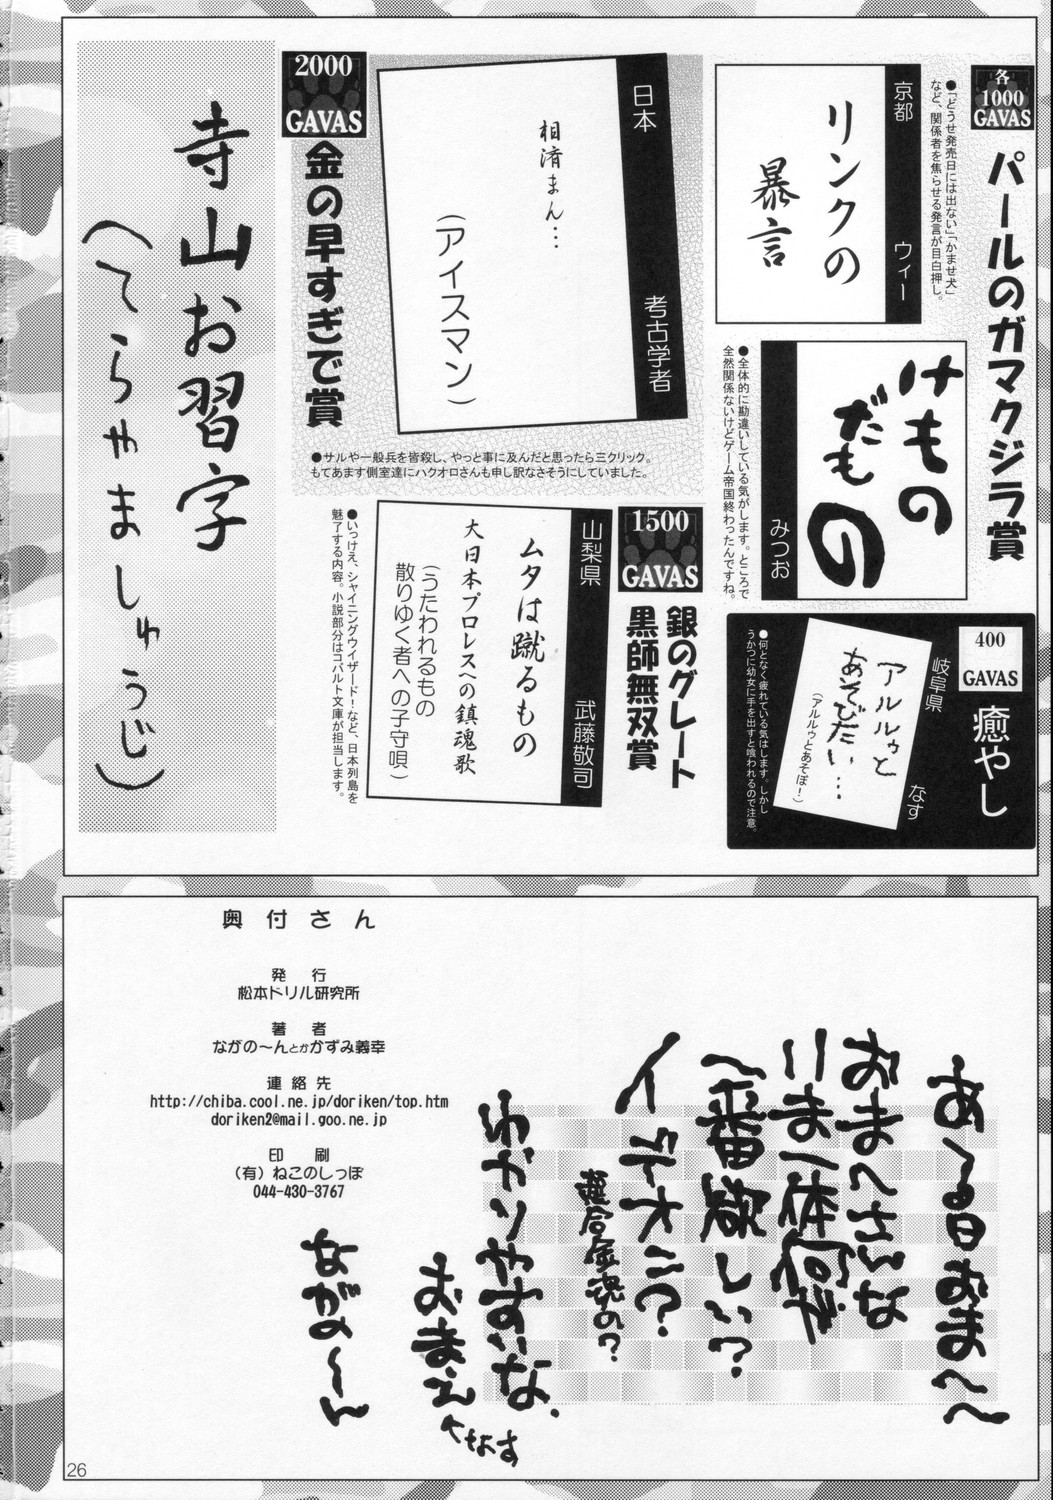 各
1000
GAVAS
パールのガマクジラ賞
京都　ウィー
リンクの
暴言
●「どうせ発売日には出ない」「かませ犬」
など、関係者を焦らせる発言が目白押し。
みつお
けもの
だもの
●全体的に勘違いしている気がします。ところで
全然関係ないけどゲーム帝国終わったんですね。
400
GAVAS
癒やし
岐阜県　なす
アルルゥと
あそびたい…
（アルルゥとあそぼ！）
●何となく疲れている気はします。しかし
うかつに幼女に手を出すと喰われるので注意。
2000
GAVAS
金の早すぎで賞
日本　考古学者
相済まん…
（アイスマン）
●サルや一般兵を皆殺し、やっと事に及んだと思ったら三クリック。
もてあます側室達にハクオロさんも申し訳なさそうにしていました。
1500
GAVAS
銀のグレート
黒師無双賞
山梨県　武藤敬司
ムタは蹴るもの
大日本プロレスへの鎮魂歌
（うたわれるもの
散りゆく者への子守唄）
●いっけえ、シャイニングウイザード！など、日本列島を
魅了する内容。小説部分はコバルト文庫が担当します。
寺山お習字
（てらやましゅうじ）
奥付さん
発行
松本ドリル研究所
著者
ながの〜んとかかずみ義幸
連絡先
http://chiba.cool.ne.jp/doriken/top.htm
doriken2@mail.goo.ne.jp
印刷
（有）ねこのしっぽ
044-430-3767
ある日おま〜へ〜
おまへさんな
いま一体何が
一番欲しい？
イデオン？
超合金魂の？
わかりやすいな、
おまえ
へなす
ながの〜ん
26